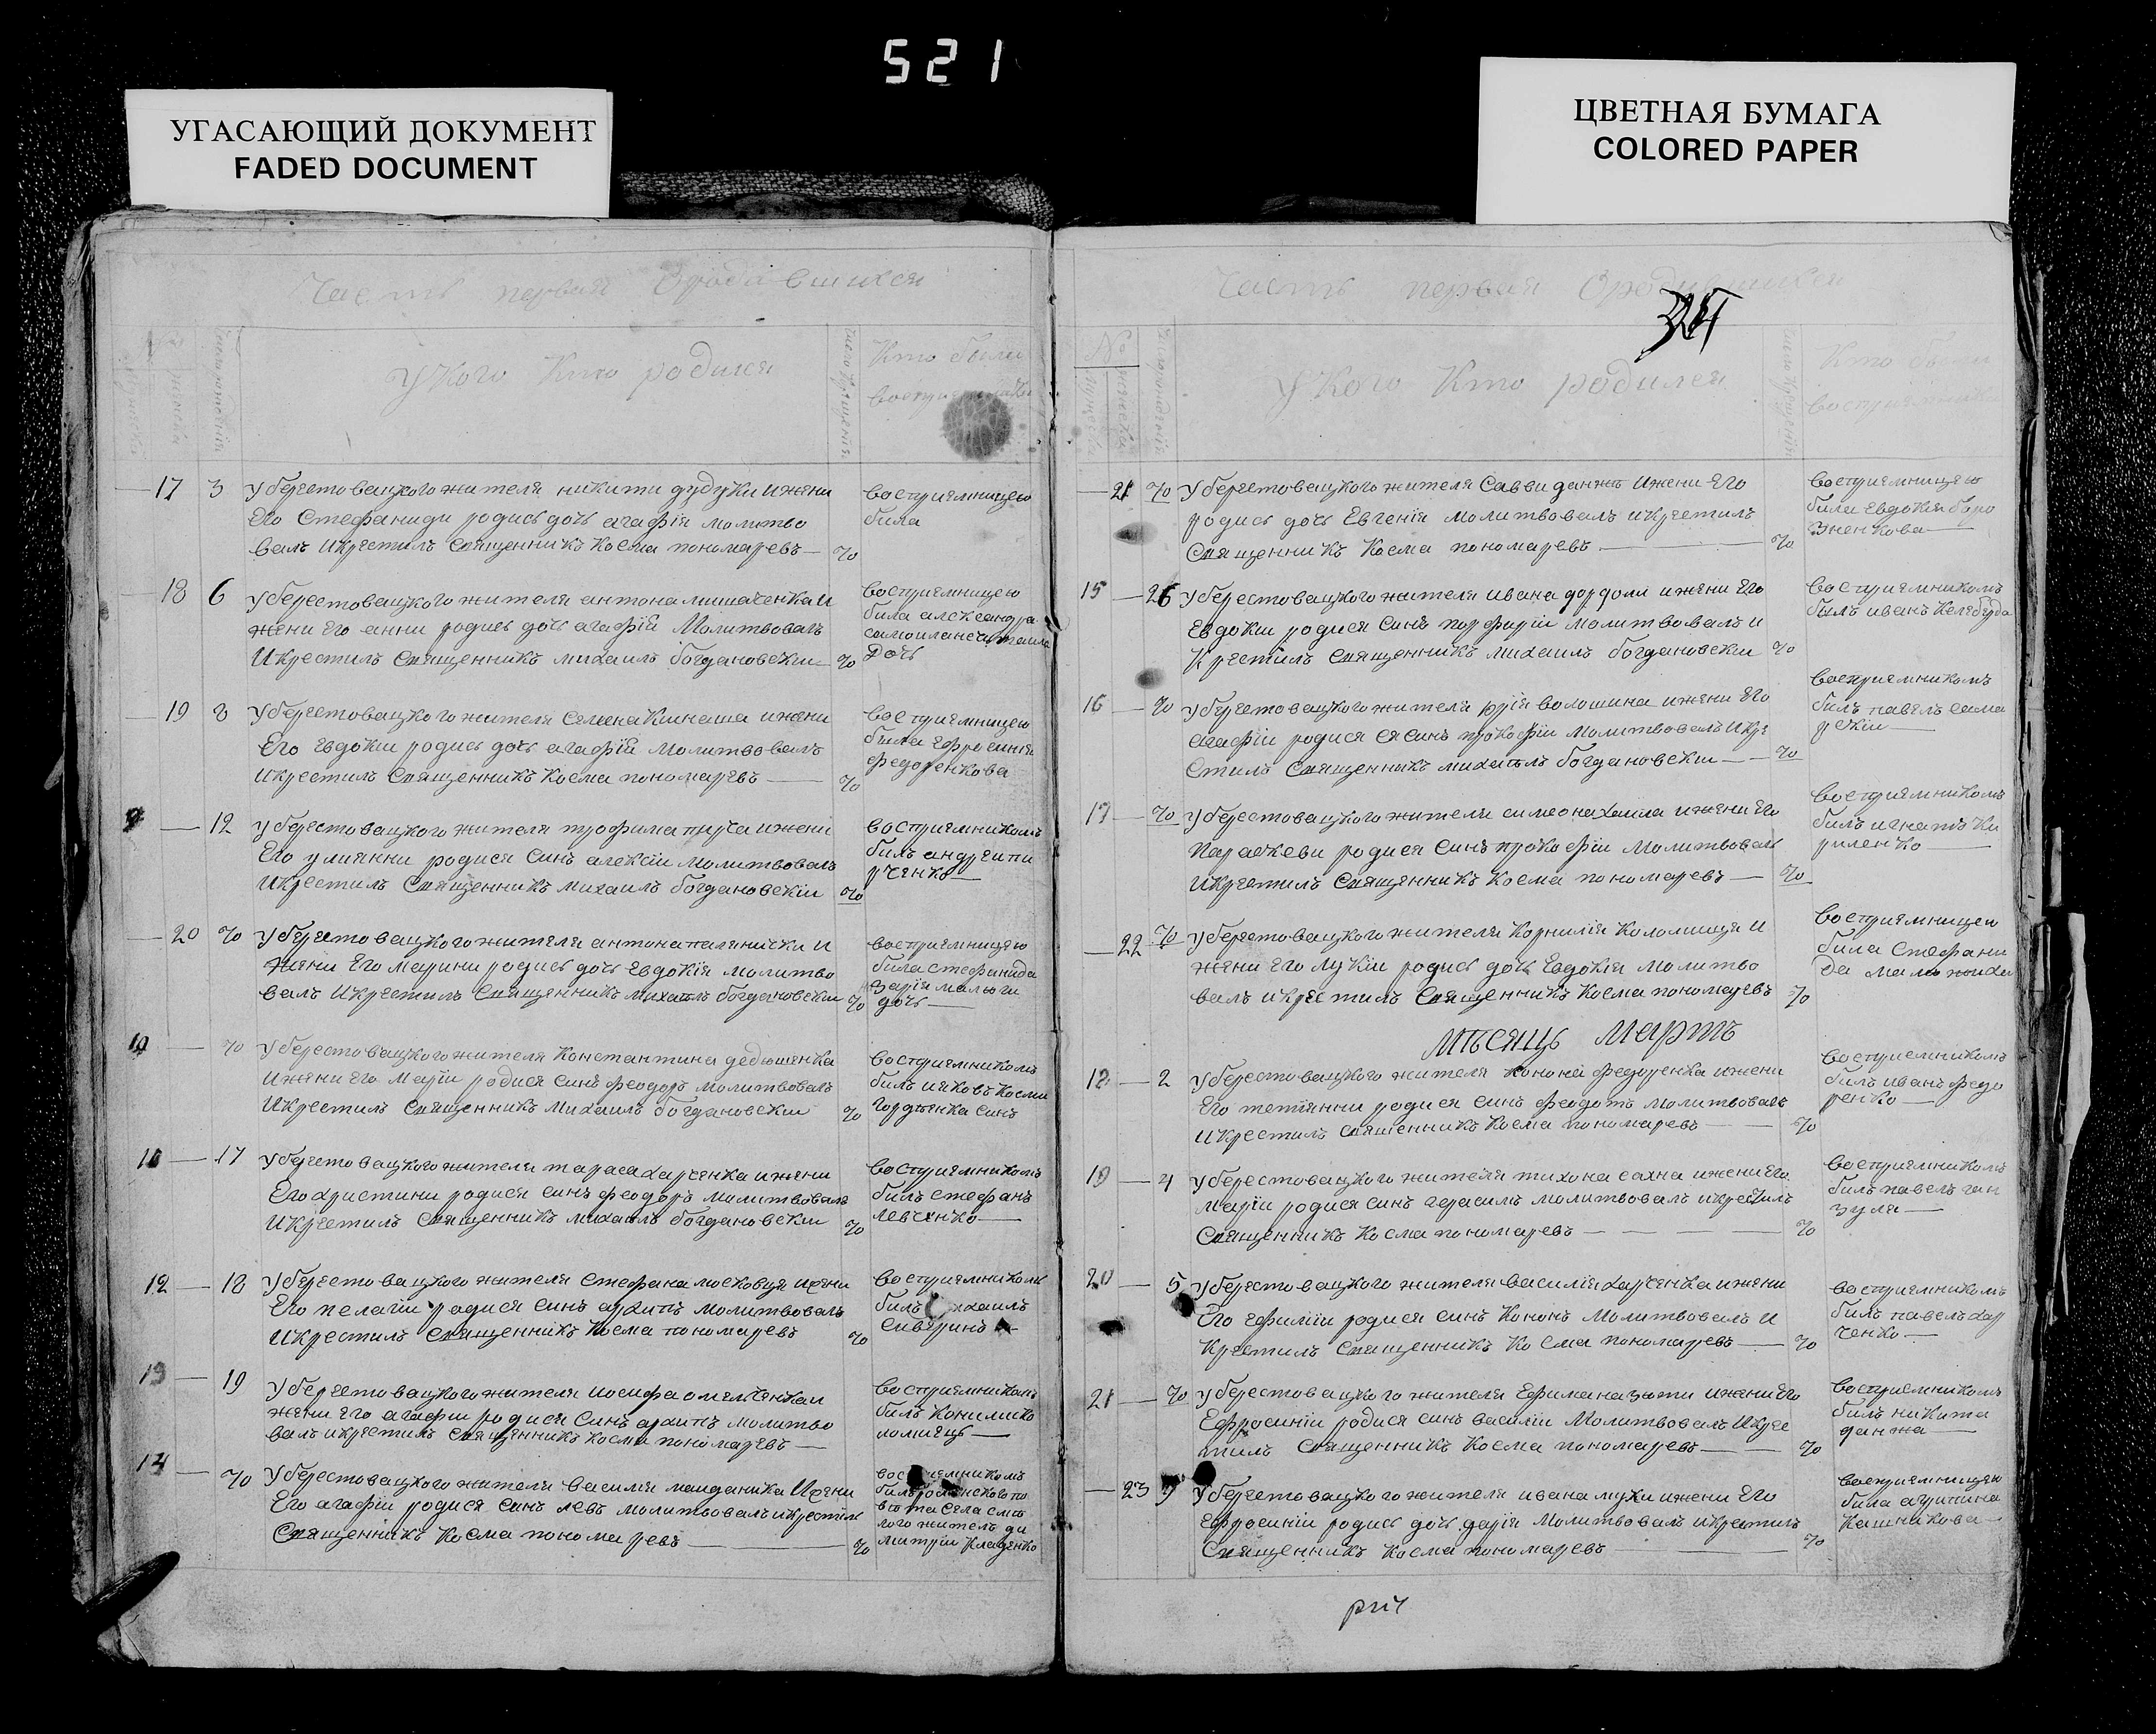 521
УГАСАЮЩИЙ ДОКУМЕНТ
FADED DOCUMENT
ЦВЕТНАЯ БУМАГА
COLORED PAPER
Часть первая О родившихся
У кого Кто родился
Кто были
восприемники
17 3 У берестовацкого жителя никити дудуки и жени
Его Стефаниди родись дочь агафiя молитво
валъ и крестилъ Священникъ Косма пономаревъ — %
восприемницею
била
18 6 У берестовацкого жителя антона мишаченка и
жени Его анни родись дочь агафiя Молитвовалъ
И крестилъ Священникъ михаилъ богдановскiи %
восприемницею
била александра
дочь
19 8 У берестовацкого жителя Семена Кинаша и жени
Его Евдокiи родись дочь агафiя Молитвовалъ
И крестилъ Священникъ Косма пономаревъ — %
восприемницею
была Ефросинiя
федоренкова
9 — 12 У берестовацкого жителя трофима пирча и жени
Его улиянни родися Синъ алексiи Молитвовалъ
И крестилъ Священникъ михаилъ богдановскiи %
восприемникомъ
билъ андреи пи
рченко —
20 % У берестовацкого жителя антона паляnички и
жени Его марини родись дочь Евдокiя молитво
валъ И крестилъ Священникъ михаилъ богдановскiи %
восприемницею
била стефанида
захарiя малюги
дочь —
10 — % У берестовацкого жителя Константина дедюшенка
И жени Его Марiи родися Синъ феодоръ молитвовалъ
И Крестилъ Священникъ Михаилъ богдановскiи %
восприемникомъ
билъ ияковъ Космы
гордѣенка синъ
11 — 17 У берестовацкого жителя тараса харченка и жени
Его христини родися синъ феодоръ молитвовалъ
И крестилъ Священникъ михаилъ богдановскiи %
восприемникомъ
билъ стефанъ
левченко —
12 — 18 У берестовацкого жителя Стефана московця и жени
Его пелагiи родися синъ архипъ молитвовалъ
И крестилъ Священникъ Косма пономаревъ %
восприемникомъ
билъ михаилъ
Сивиринъ
13 — 19 У берестовацкого жителя иосифа омельченка и
жени Его агафiи родися Синъ архипъ молитво
валъ и крестилъ Священникъ Косма пономаревъ —
восприемникомъ
билъ Конилиско
ломиецъ —
14 — % У берестовацкого жителя Василiя маиданика И жени
Его агафiи родися Синъ левъ молитвовалъ и крестилъ
Священникъ Косма пономаревъ — %
восприемникомъ
лого житель ди
митрiи
Часть первая О родившихся
№
У кого Кто родился
Кто были
восприемники
21 % У берестовацкого жителя Савви данжи И жени Его
родись дочь Евгенiя молитвовалъ и крестилъ
Священникъ Косма пономаревъ — %
восприемницею
била Евдокiя боро
зненкова —
15 — 26 У берестовацкого жителя ивана дордоли и жени Его
Евдокiи родися Синъ порфирiи молитвовалъ и
Крестилъ Священникъ михаилъ богдановскiи %
восприемникомъ
былъ иванъ Келебурда
16 — % У берестовацкого жителя юрiя волошина и жени Его
агафiи родися Синъ прокофiи Молитвовалъ И кре
стилъ Священникъ михаилъ богдановскiи — %
восприемникомъ
билъ павелъ сама
рскiи —
17 — % У берестовацкого жителя симеона хаила и жени Его
Параскеви родися Синъ прокофiи Молитвовалъ
И крестилъ Священникъ Косма пономаревъ — %
восприемникомъ
билъ игнатъ Ки
риленко —
22 % У берестовацкого жителя Корнилiя Коломийця И
жени Его Лукiи родись дочь Евдокiя молитво
валъ и крестилъ Священникъ Косма пономаревъ %
восприемницею
била Стефани
да
мѣсяць Мартъ
18 — 2 У берестовацкого жителя Конона федоренка и жени
Его тетiянни родися синъ феодотъ молитвовалъ
И Крестилъ священникъ Косма пономаревъ — %
восприемникомъ
билъ иванъ федо
ренко —
19 — 4 У берестовацкого жителя тихона сахна и жени Его
марiи родися синъ герасимъ молитвовалъ и крестилъ
Священникъ Косма пономаревъ — %
восприемникомъ
билъ павелъ ган
зуля —
20 — 5 У берестовацкого жителя василiя харченка и жени
Его Ефимiи родися синъ Кононъ Молитвовалъ И
Крестилъ Священникъ Косма пономаревъ — %
восприемникомъ
билъ павелъ хар
ченко —
21 — % У берестовацкого жителя Ефима назыти и жени Его
Ефросинiи родися синъ василiи Молитвовалъ И крес
тилъ Священникъ Косма пономаревъ — %
восприемникомъ
билъ никита
данжа —
23 9 У берестовацкого жителя ивана мухи и жени Его
Ефросинiи родись дочь дарiя Молитвовалъ и крестилъ
Священникъ Косма пономаревъ — %
восприемницею
била агрипина
Кашникова —